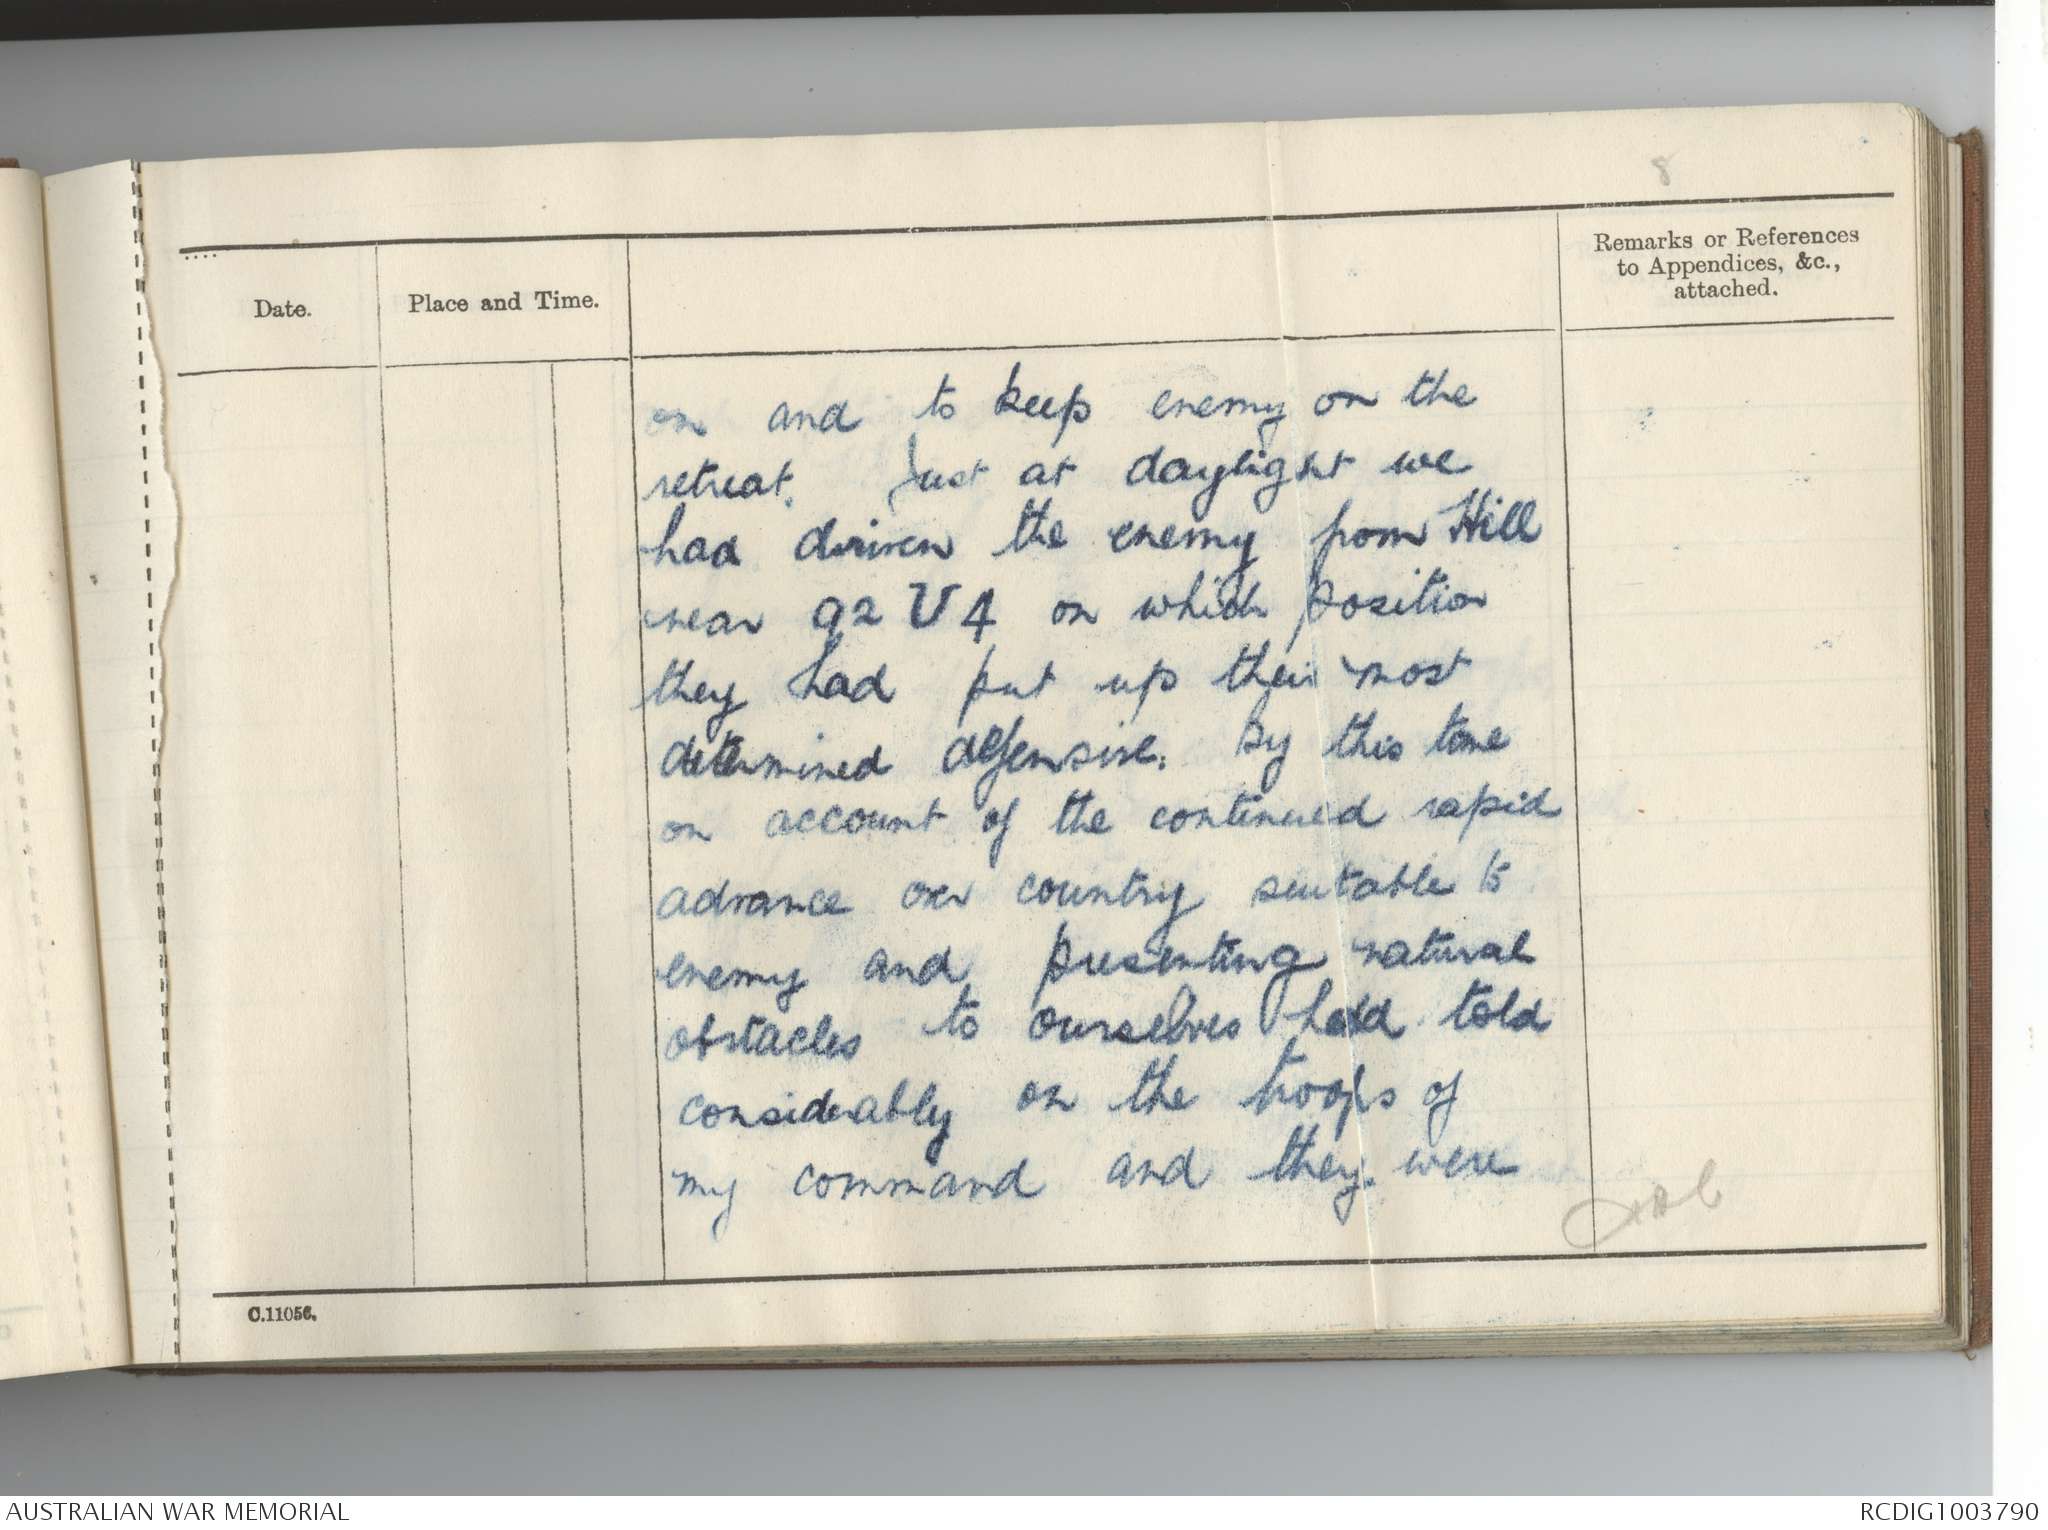 8
Date.
Place and Time.
Remarks or References
to Appendices, &c.,
attached.
on and to keep enemy on the
retreat. Just at daylight we
had driven the enemy from Hill
near 92 V 4 on which position
they had put up their most
determined defensive. By this time
on account of the continued rapid
advance over country suitable to
enemy and presenting natural
obstacles to ourselves had told
considerably on the troops of
my command and they were
C.11056.
AUSTRALIAN WAR MEMORIAL
RCDIG1003790